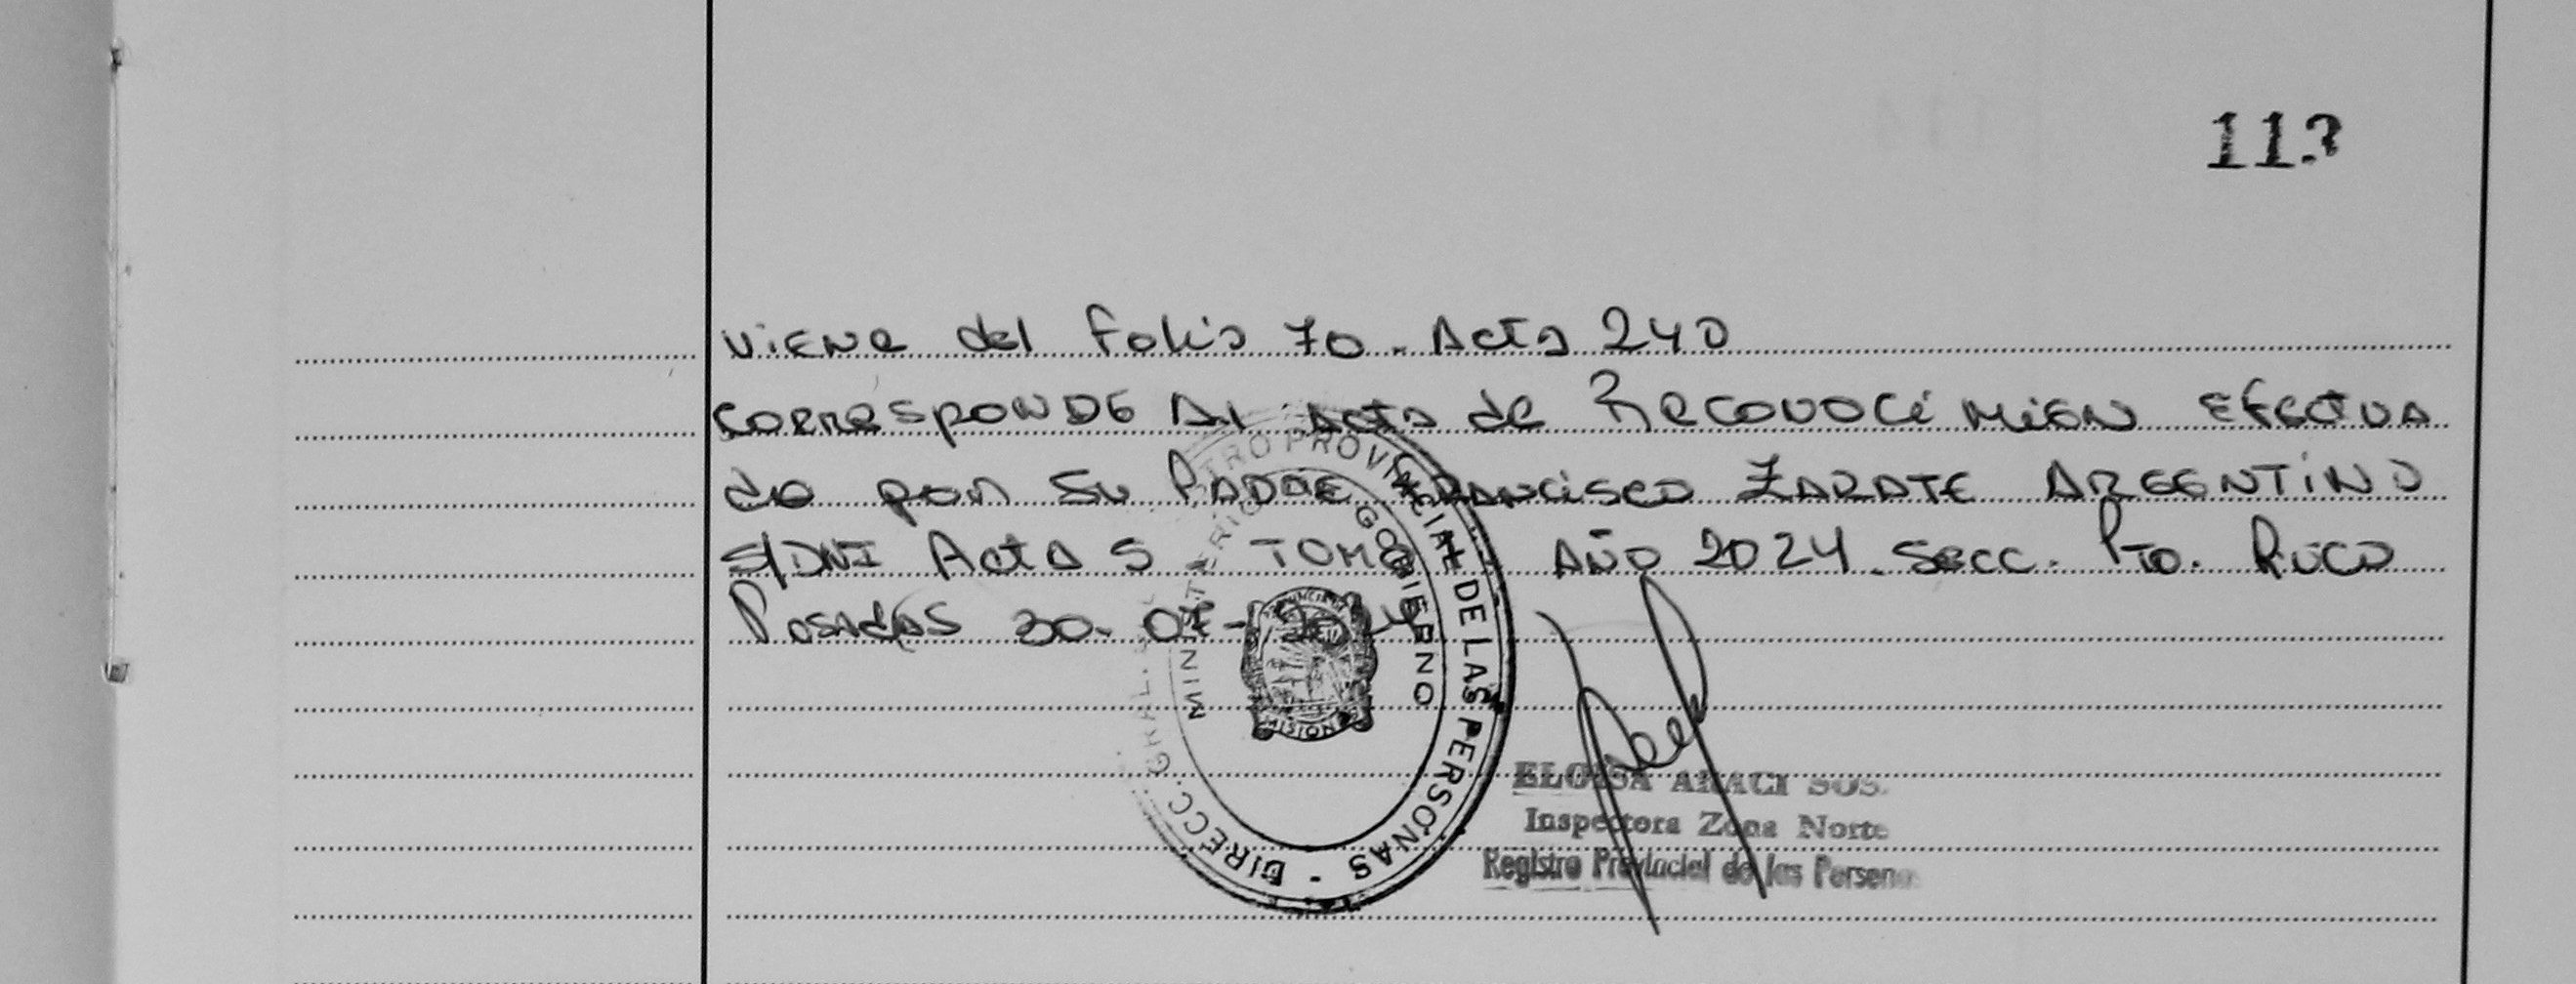 113
Viene del Folio 70. Acta 240
Corresponde Al Acta de Reconocimien Efectua
do por su Padre Francisco Zarate Argentino
S/DNI Acta 5 - Tomo Año 2024. Secc. Pto. Rico
Posadas 30-07-2024
DIRECC. GRAL. PROVINCIAL DE LAS PERSONAS -
MINISTERIO GOBIERNO
PROVINCIA DE
MISIONES
ELOISA ARACI SOS
Inspectora Zona Norte
Registro Provincial de las Persona